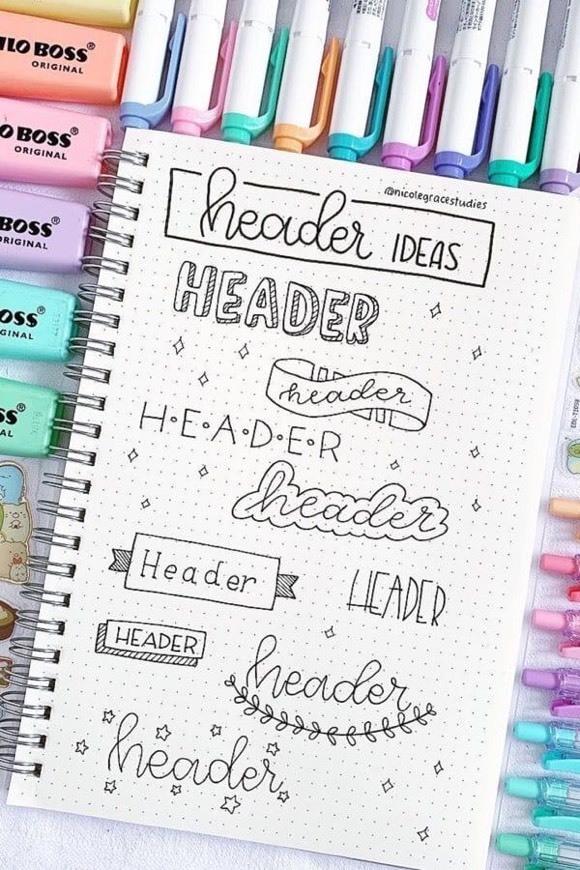 LO BOSS®
ORIGINAL
O BOSS®
ORIGINAL
BOSS®
ORIGINAL
OSS®
GINAL
SS®
@nicolegracestudies
header IDEAS
HEADER
header
H·E·A·D·E·R
header
Header
HEADER
HEADER
header
header